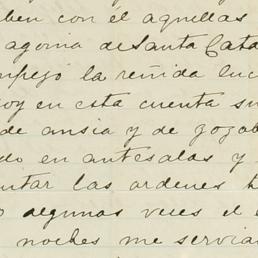 ben con él aquellas
agonia de Santa Cata
mpezó la reñida luc
oy en esta cuenta su
de ansia y de gozob
do en antesalas y
ntar las ordenes h
o algunas veces el
noches me servia